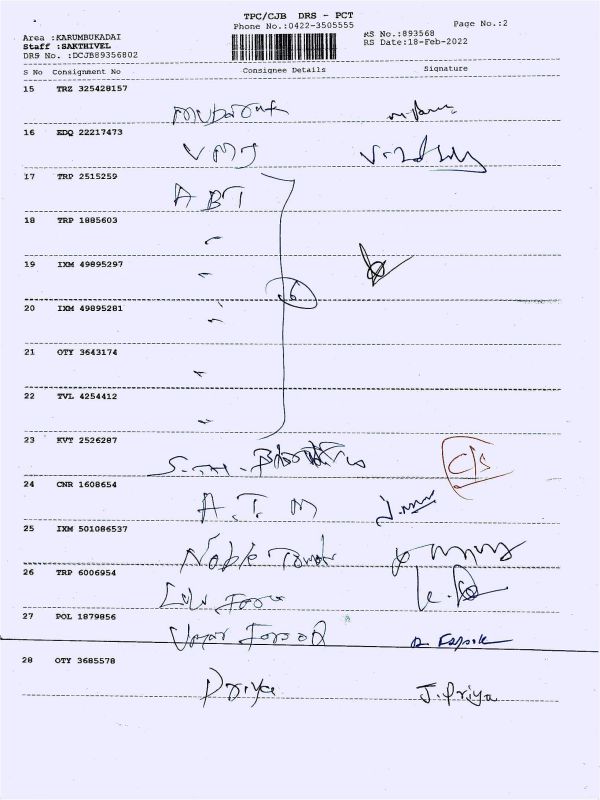 TPC/CJB DRS - PCT
Phone No.:0422-3505555
Page No.:2
Area :KARUMBUKADAI
RS No.:893568
Staff :SAKTHIVEL
RS Date:18-Feb-2022
DRS No. :DCJB89356802
S No Consignment No Consignee Details Signature
15 TRZ 325428157
Mubarak
16 EDQ 22217473
VMJ
17 TRP 2515259
ABT
18 TRP 1885603
19 IXM 49895297
6
20 IXM 49895281
21 OTY 3643174
22 TVL 4254412
23 KVT 2526287
C/S
24 CNR 1608654
A.T.M
25 IXM 501086537
Noble
26 TRP 6006954
27 POL 1879856
Umar Farook
28 OTY 3685578
Priya J.Priya